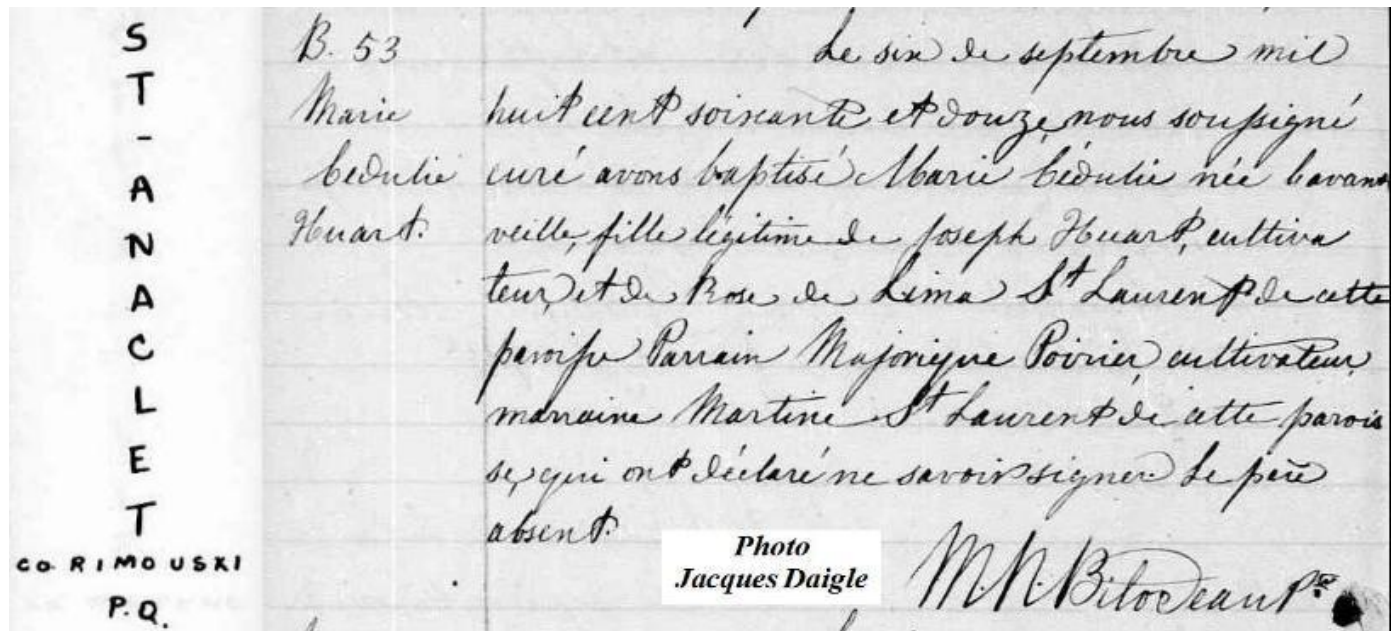 ST-ANACLET
CO. RIMOUSKI
P.Q.
B. 53
Marie
Cédulie
Huart.
Le six de septembre mil
huit cent soixante et douze, nous soussigné
curé avons baptisé Marie Cédulie née l'avant
veille, fille légitime de Joseph Huart, cultiva
teur, et de Rose de Lima St Laurent de cette
paroisse Parrain Majorique Poirier, cultivateur,
marraine Martine St Laurent de cette parois
se, qui ont déclaré ne savoir signer. Le père
absent.
M N. Bilodeau Ptre
Photo
Jacques Daigle